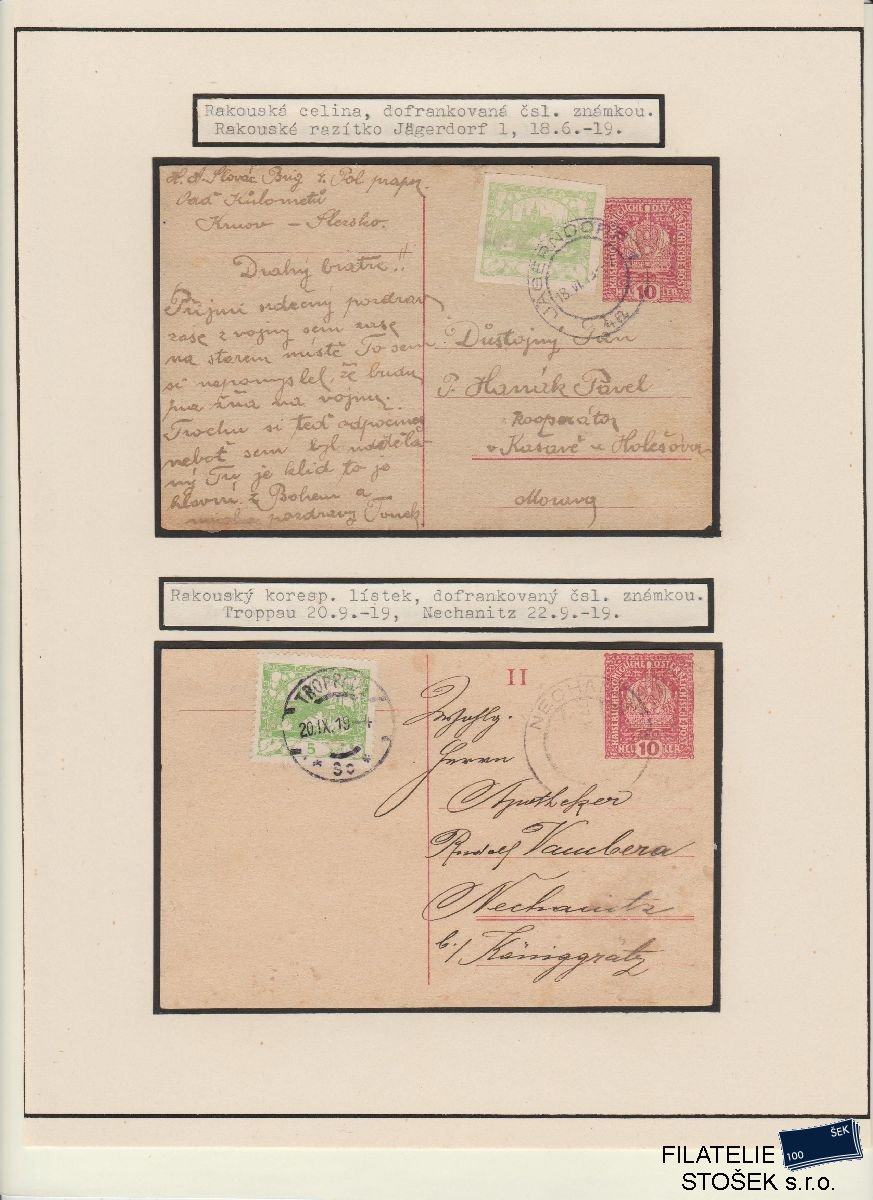 Rakouská celina, dofrankovaná čsl. známkou.
Rakouské razítko Jägerdorf 1, 18.6.-19.
Slovác Brig
Kulometů
Krnov – Slezsko.
Drahý bratře!!
Přijmi srdečný pozdrav
zase z vojny sem zase
na starem místě To sem
si nepomyslel, že budu
na vojnu.
Trochu si teď odpočinu
neboť sem byl
je klid to je
hlavní. z Bohem a
pozdravy Tonek
JÄGERNDORF
18.VI.19
KAISERLICHE KÖNIGLICHE ÖSTERREICHISCHE POST
HELLER
10
Důstojny Pan
P. Hanák Pavel
kooperátor
v Kašavě u Holešova
Morava
Rakouský koresp. lístek, dofrankovaný čsl. známkou.
Troppau 20.9.-19, Nechanitz 22.9.-19.
TROPPAU
20.IX.19
* 5c *
5
II
NECHANITZ
HELLER
10
Wohlg.
Herrn
Apotheker
Rudolf Vambera
Nechanitz
b./ Königgratz
FILATELIE
STOŠEK s.r.o.
100
ŠEK